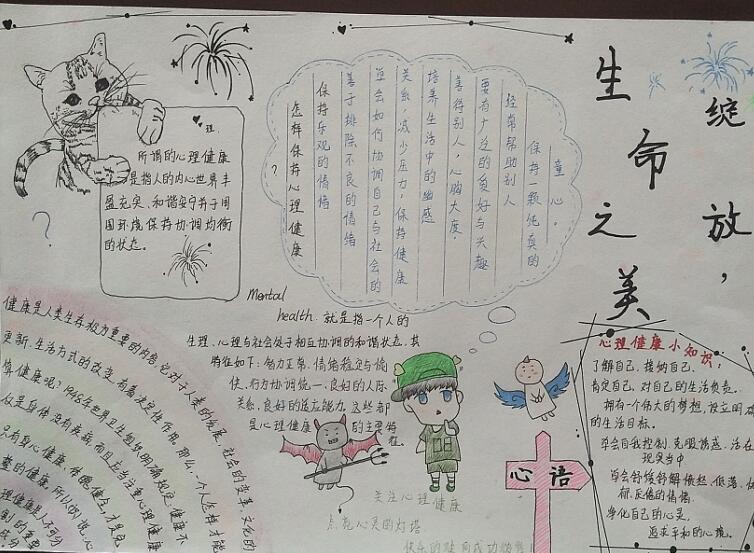 绽放，
生命之美
心理。
所谓的心理健康
是指人的内心世界丰
盈充实、和谐安宁并于周
围环境保持协调均衡
的状态。
?
怎样保持心理健康
?
保持乐观的情绪
善于排除不良的情绪
学会如何协调自己与社会的
关系，减少压力，保持健康
培养生活中的幽感
善待别人，心胸大度，
要有广泛的爱好与兴趣
经常帮助别人
保持一颗纯真的
童心。
Mental
health. 就是指一个人的
生理、心理与社会处于相互协调的和谐状态，其
特征如下：智力正常、情绪稳定与愉
快、行为协调统一、良好的人际
关系、良好的适应能力。这些都
是心理健康的主要特
征
健康是人类生存极为重要的内容，它对于人类的发展，社会的变革，文化的
更新、生活方式的改变，有着决定性作用。那么，一个人怎样才能
算健康呢？1948年世界卫生组织明确规定：健康不
仅是身体没有疾病，而且应当注重心理健康
只有身心健康、体魄健全，才是完
整的健康。所以说，心
理健康是人不可分
割的重要
部分
心理健康小知识：
了解自己，接纳自己，
肯定自己，对自己的生活负责。
拥有一个伟大的梦想，设立明确
的生活目标。
学会自我控制，克服诱惑，活在
现实当中
学会舒缓舒解愤怒、低落、
郁、反复的情绪。
净化自己的心灵。
追求平和的心境。
心语
关注心理健康
点亮心灵的灯塔